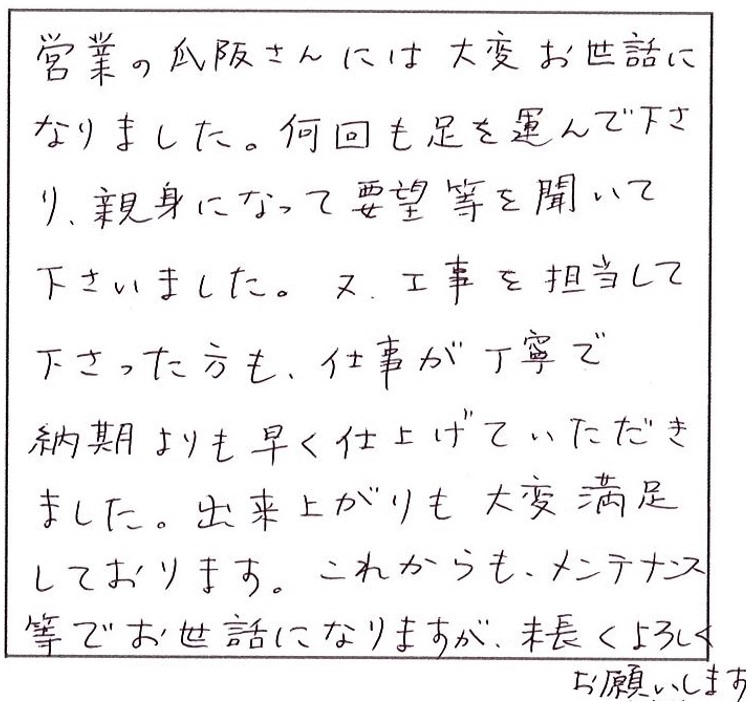 営業の瓜阪さんには大変お世話に
なりました。何回も足を運んで下さ
り、親身になって要望等を聞いて
下さいました。又、工事を担当して
下さった方も、仕事が丁寧で
納期よりも早く仕上げていただき
ました。出来上がりも大変満足
しております。これからも、メンテナンス
等でお世話になりますが、末長くよろしく
お願いします